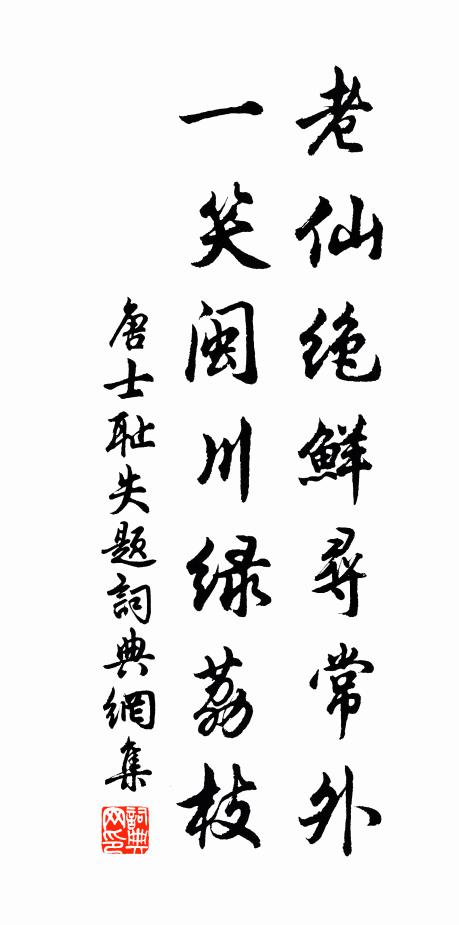 老仙绝鲜寻常外
一笑闽川绿荔枝
唐士耻失题詞典網集
詞典网印